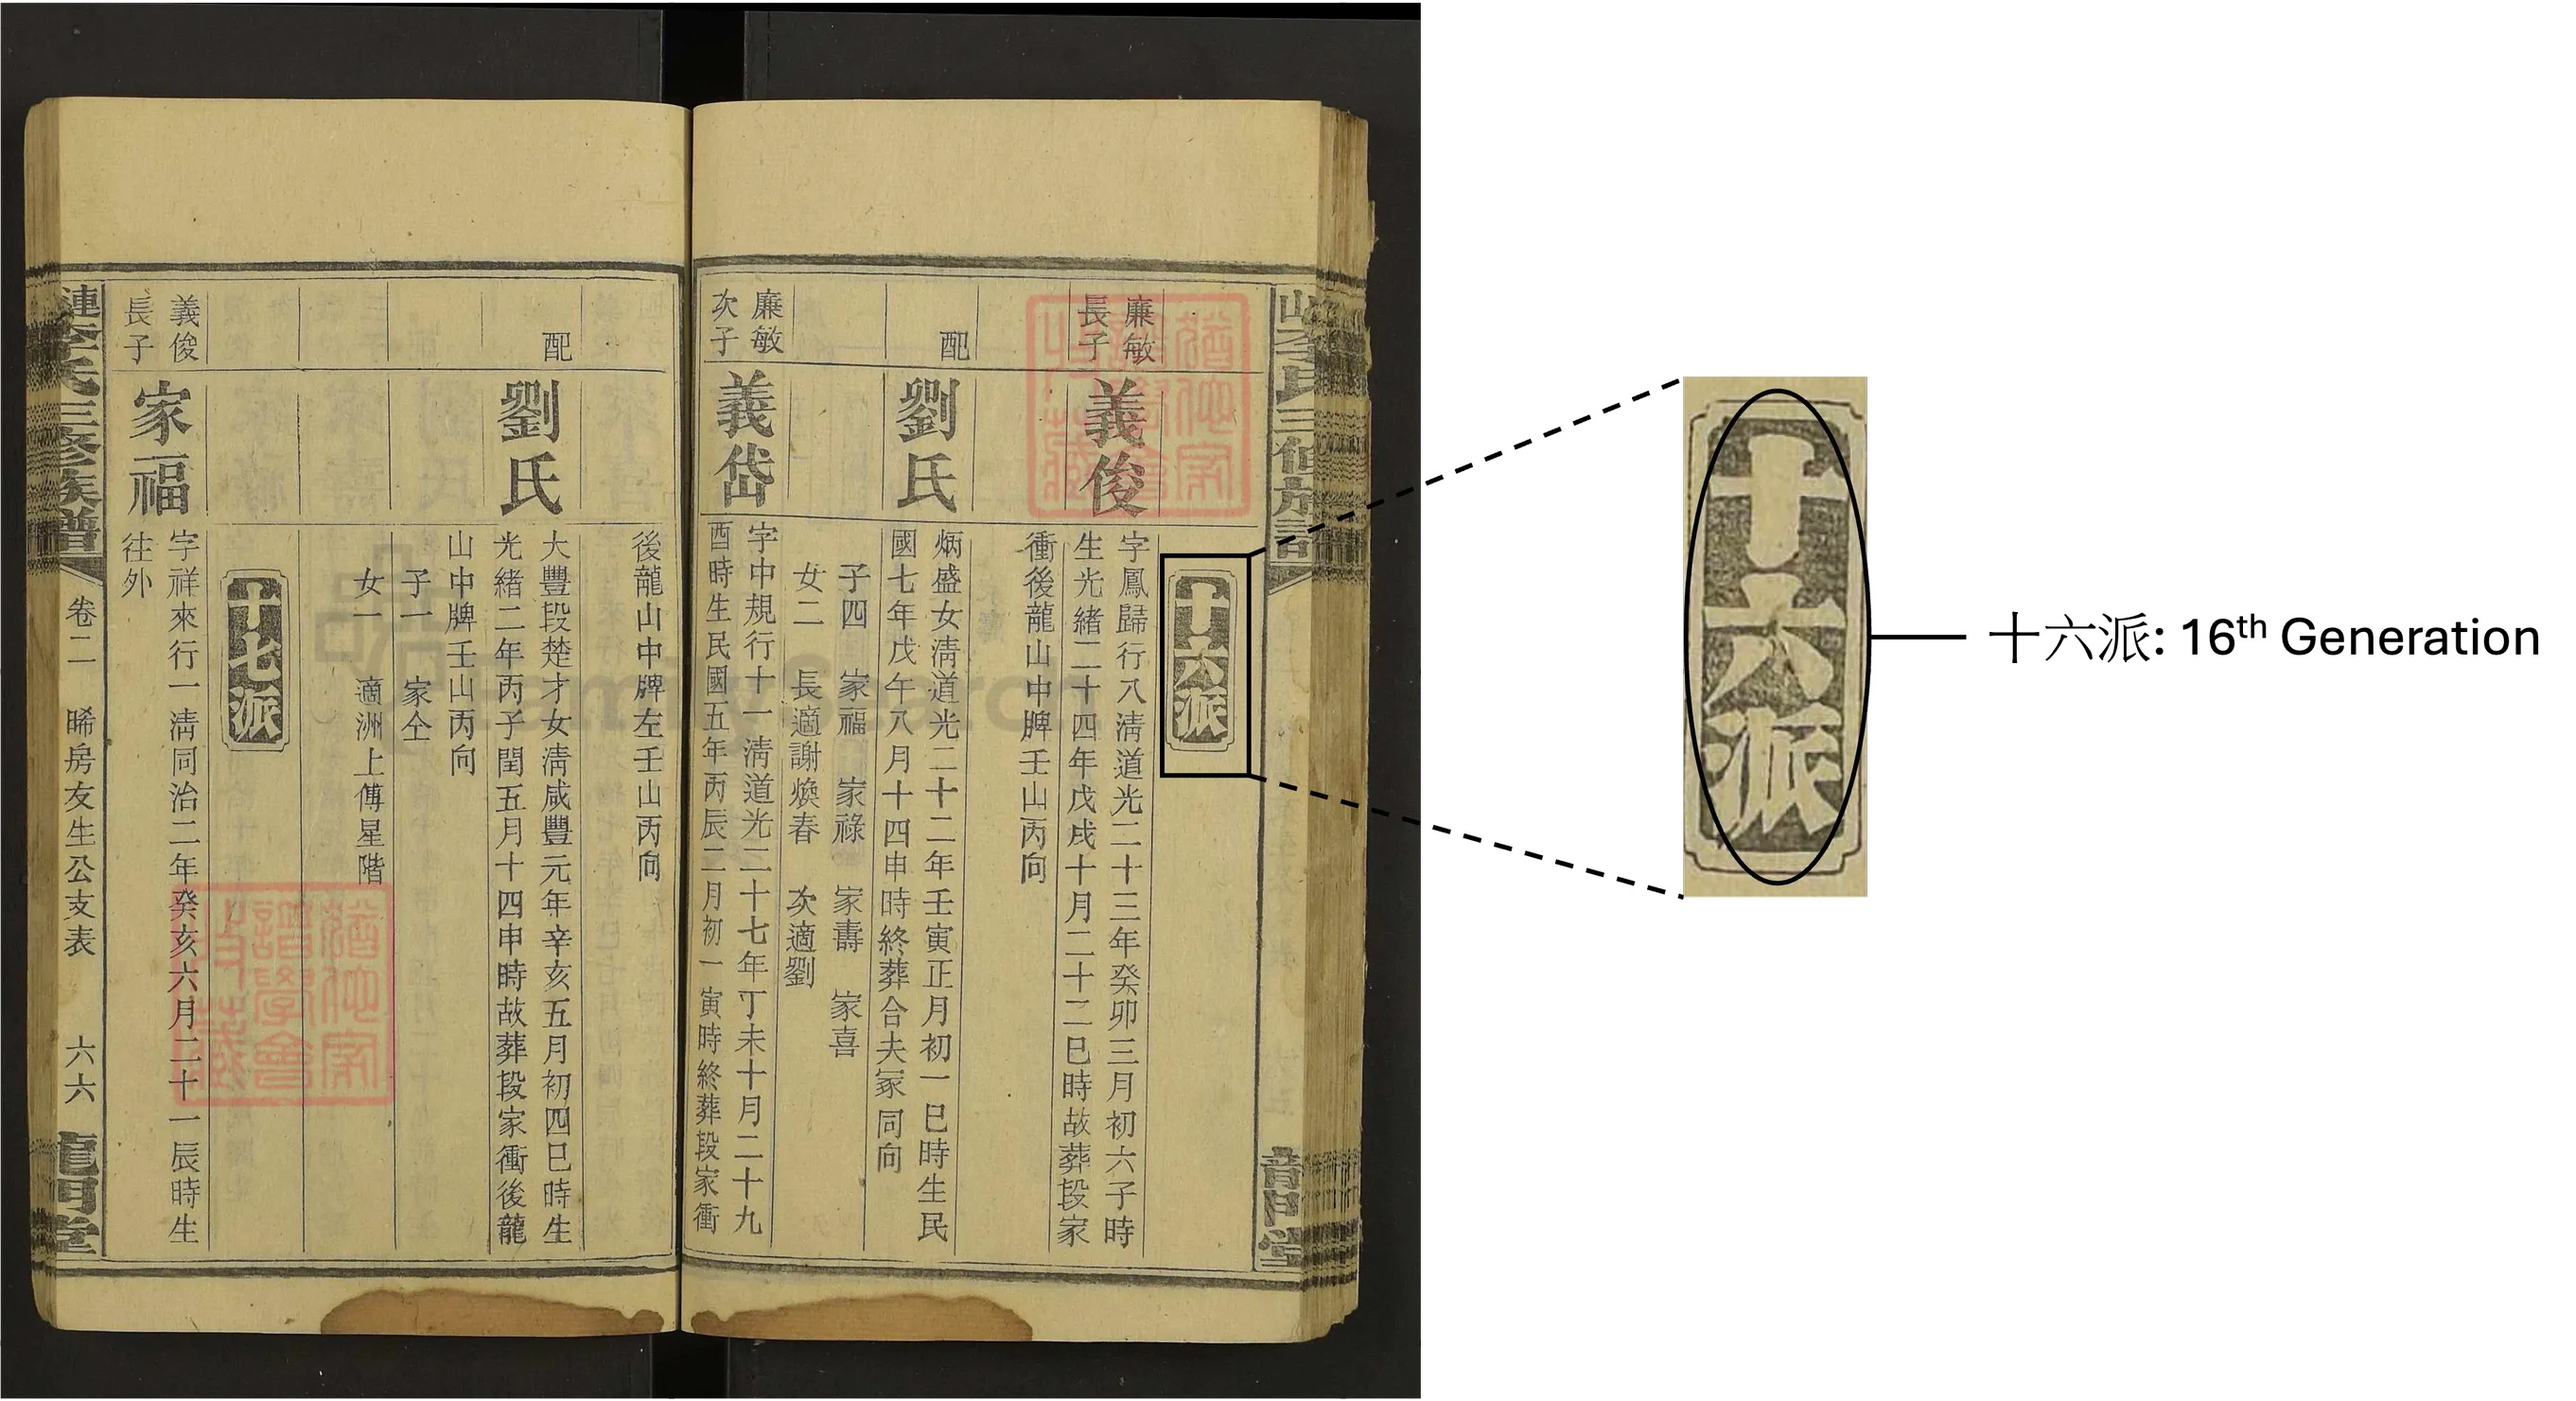 十六派
廉敏
長子
義俊
字鳳歸行八淸道光二十三年癸卯三月初六子時
生光緒二十四年戊戌十月二十二巳時故葬段家
衝後龍山中牌壬山丙向
配
劉氏
炳盛女淸道光二十二年壬寅正月初一巳時生民
國七年戊午八月十四申時終葬合夫冢同向
子四 家福 家祿 家壽 家喜
女二 長適謝煥春 次適劉
廉敏
次子
義岱
字中規行十一淸道光二十七年丁未十月二十九
酉時生民國五年丙辰二月初一寅時終葬段家衝
後龍山中牌左壬山丙向
配
劉氏
大豐段楚才女淸咸豐元年辛亥五月初四巳時生
光緒二年丙子閏五月十四申時故葬段家衝後龍
山中牌壬山丙向
子一 家仝
女一 適洲上傅星階
十七派
義俊
長子
家福
字祥來行一淸同治二年癸亥六月二十一辰時生
往外
漣李氏三修族譜 卷二 晞房友生公支表 六六 龍門堂
FamilySearch
十六派
十六派: 16th Generation